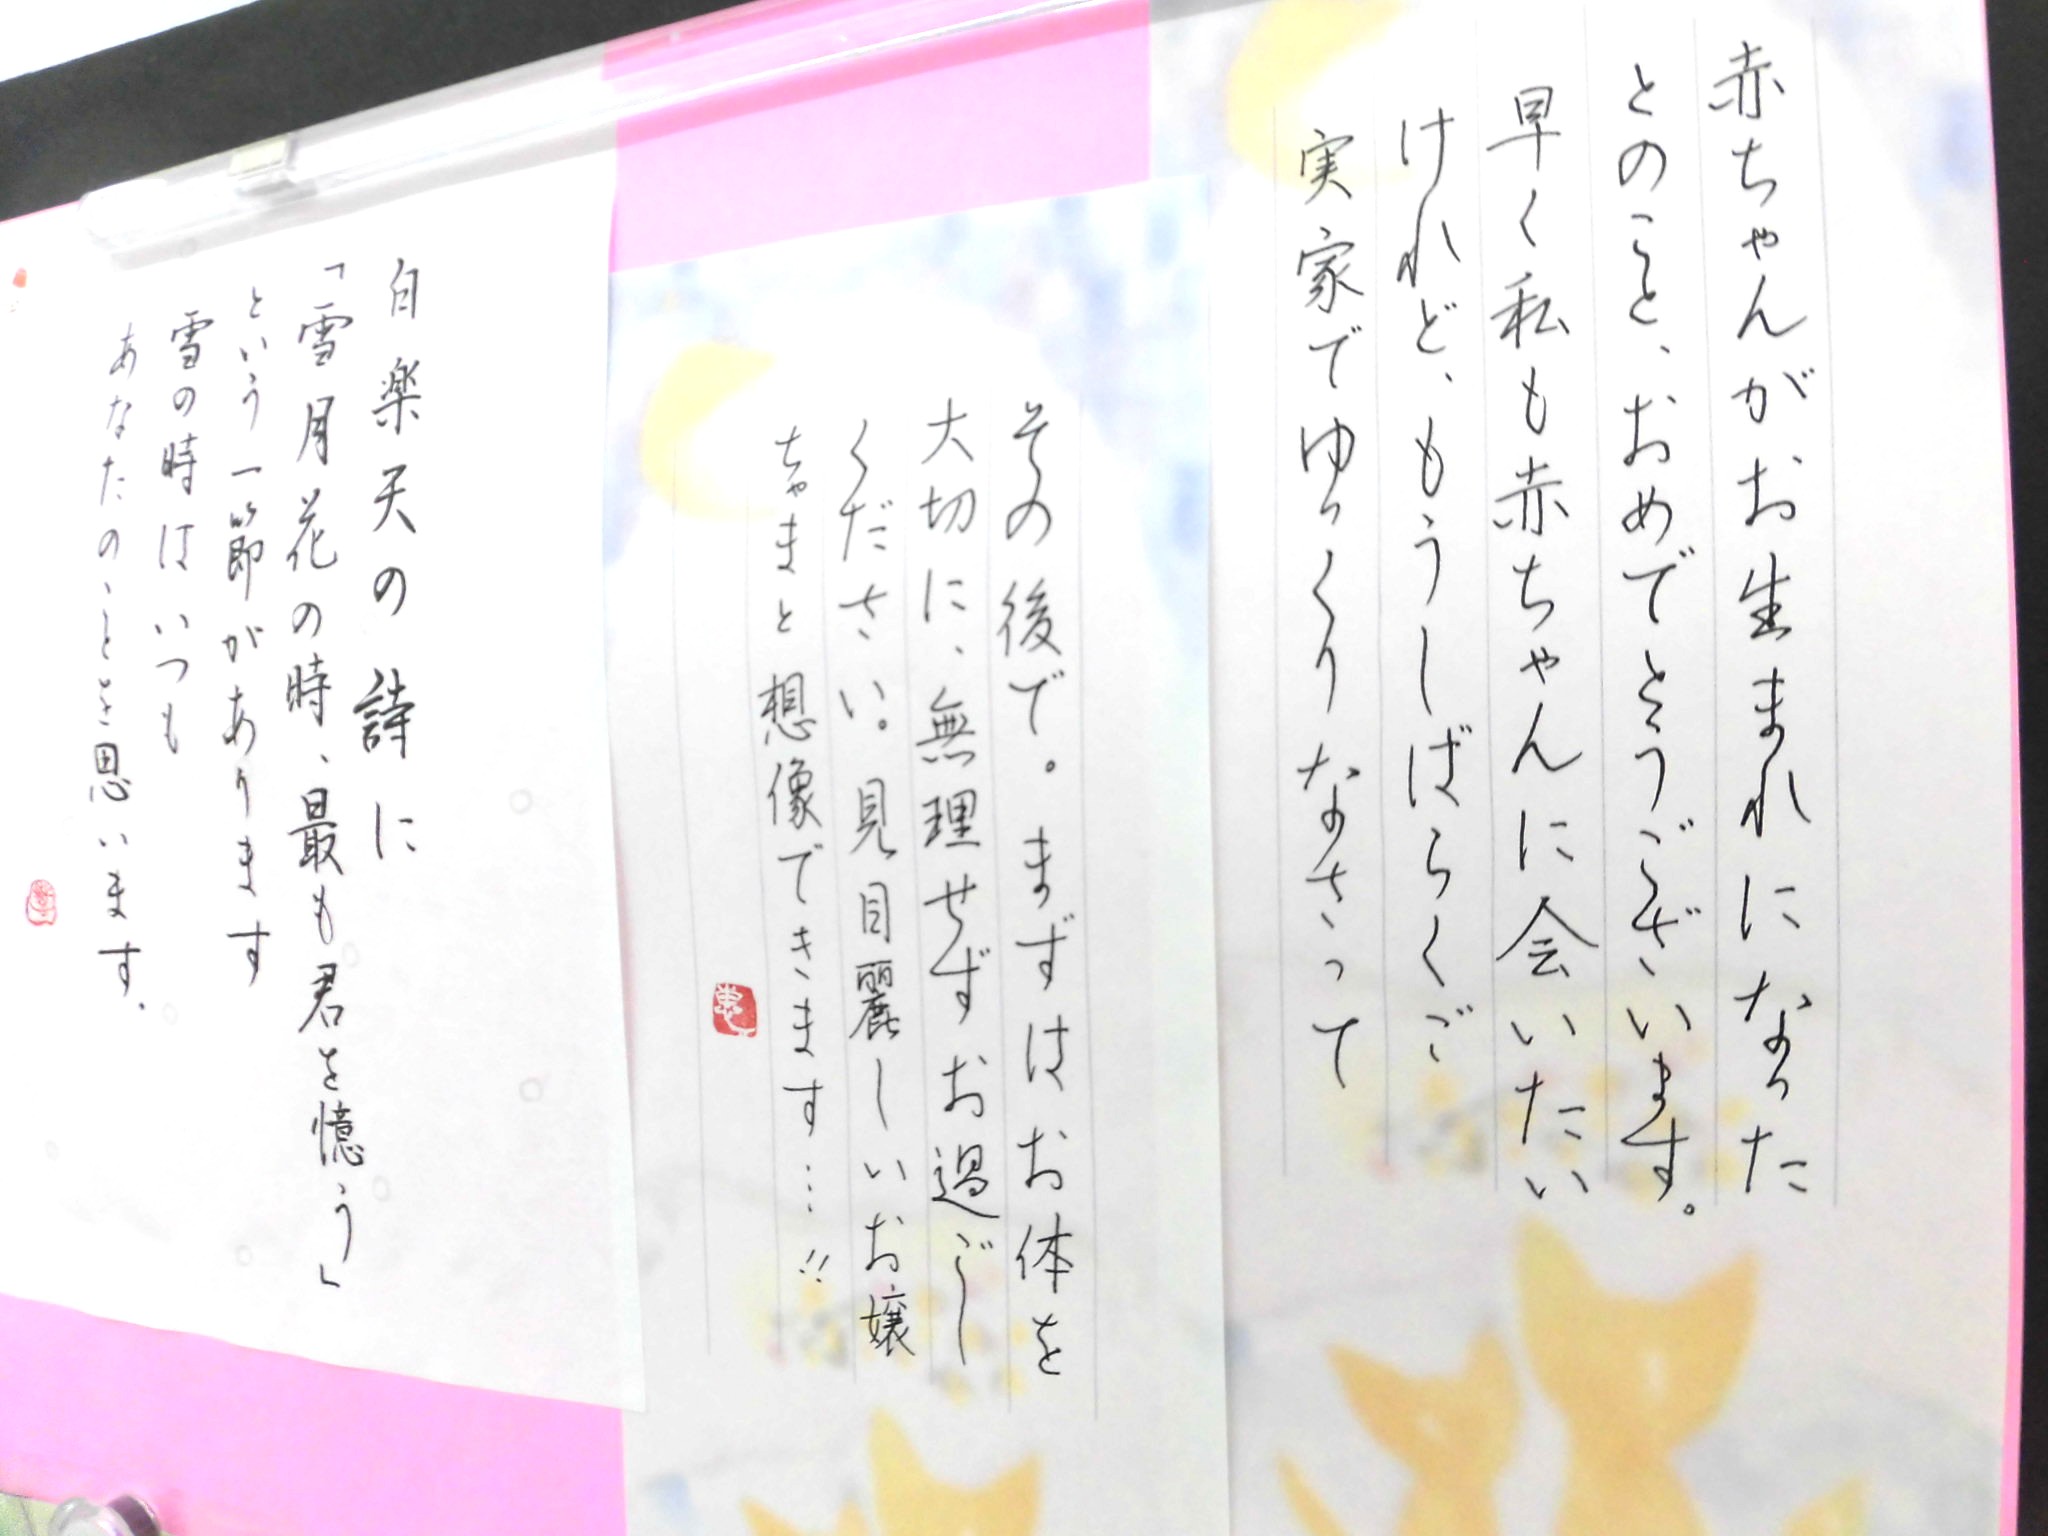 赤ちゃんがお生まれになった
とのこと、おめでとうございます。
早く私も赤ちゃんに会いたい
けれど、もうしばらくご
実家でゆっくりなさって
その後で。まずはお体を
大切に、無理せずお過ごし
ください。見目麗しいお嬢
ちゃまと想像できます…!!
恵
白楽天の詩に
「雪月花の時、最も君を憶う」
という一節があります
雪の時はいつも
あなたのことを思います.